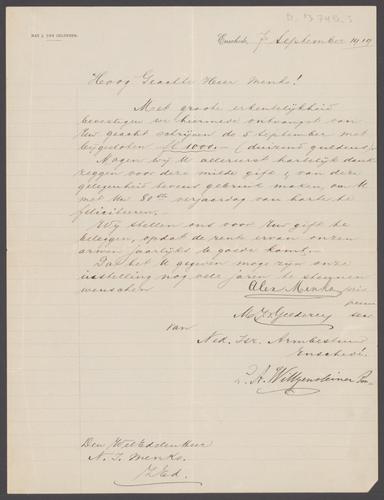 NAT. J. VAN GELDEREN.
Enschede, 7 September 1919
Hoog Geachte Heer Menko!
Met groote erkentelijkheid
bevestigen we hiermede ontvangst van
Uw geacht schrijven de 5 September met
bijgesloten fl 1000.— (duizend gulden).
Mogen wij U allereerst hartelijk dank
zeggen voor deze milde gift & van deze
gelegenheid tevens gebruik maken, om U
met Uw 80sten verjaardag van harte te
feliciteeren.
Wij stellen ons voor Uw gift te
beleggen, opdat de rente ervan onzen
armen jaarlijks te goede komt.
Dat het U gegeven moge zijn onze
instelling nog vele jaren te steunen
wenschen
Alex Menko
van
Ned. Isr. Armbestuur
Enschede.
Wittgensteiner
Den WelEdelen Heer
N. J. Menko.